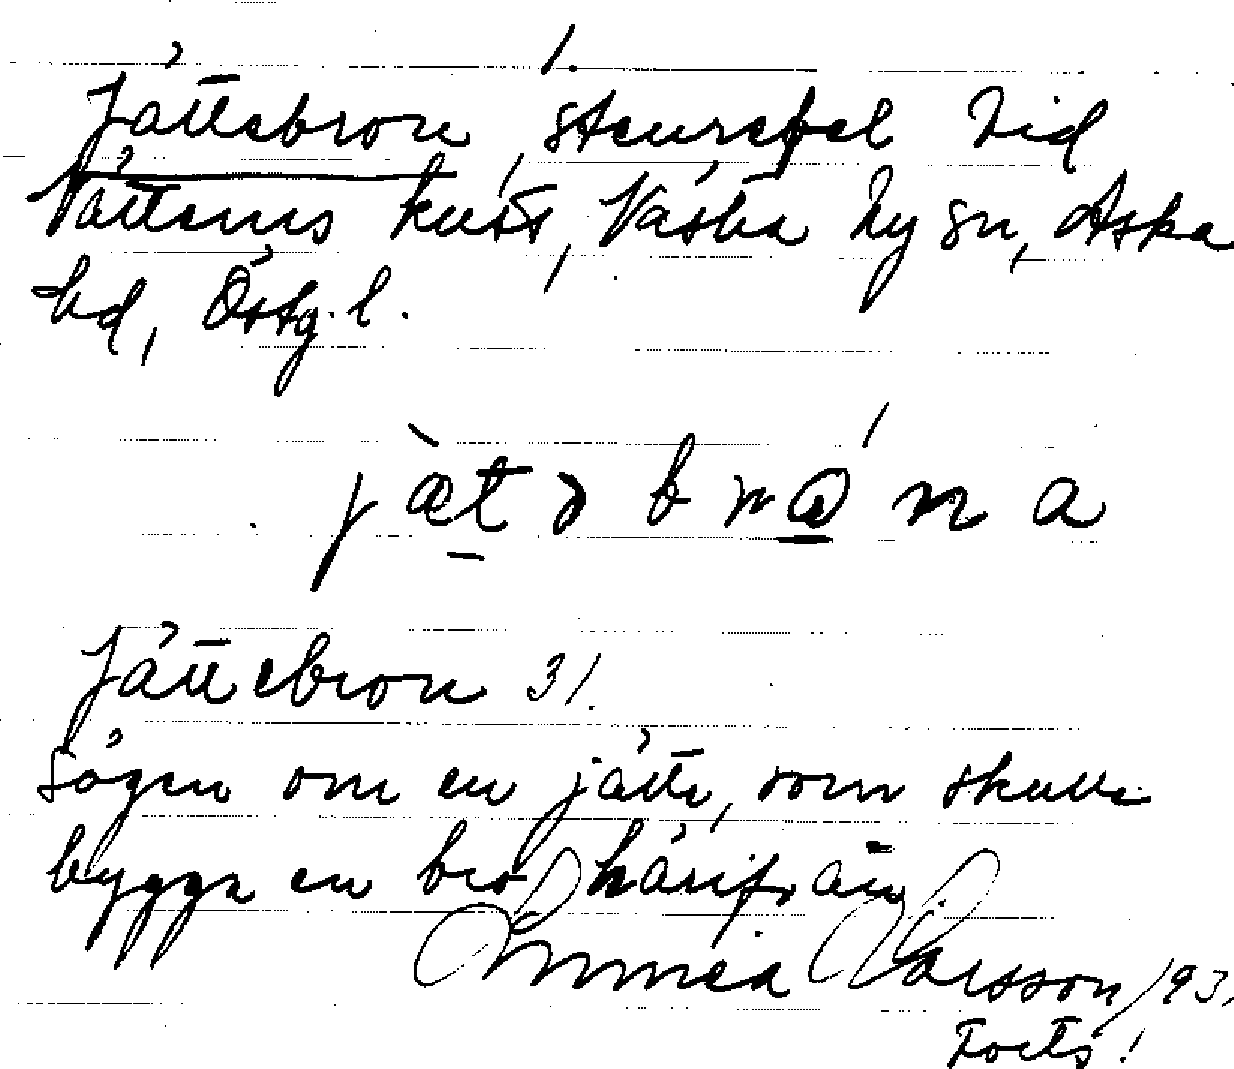 1.
Jättebron, stenrefvel vid
Vätterns kust, Västra Ny sn, Aska
hd, Östg. l.
jæ̀təbrǿna
Jättebron 31.
Sägen om en jätte, som skulle
bygga en bro härifrån.
Linnéa Larsson /93.
Forts!